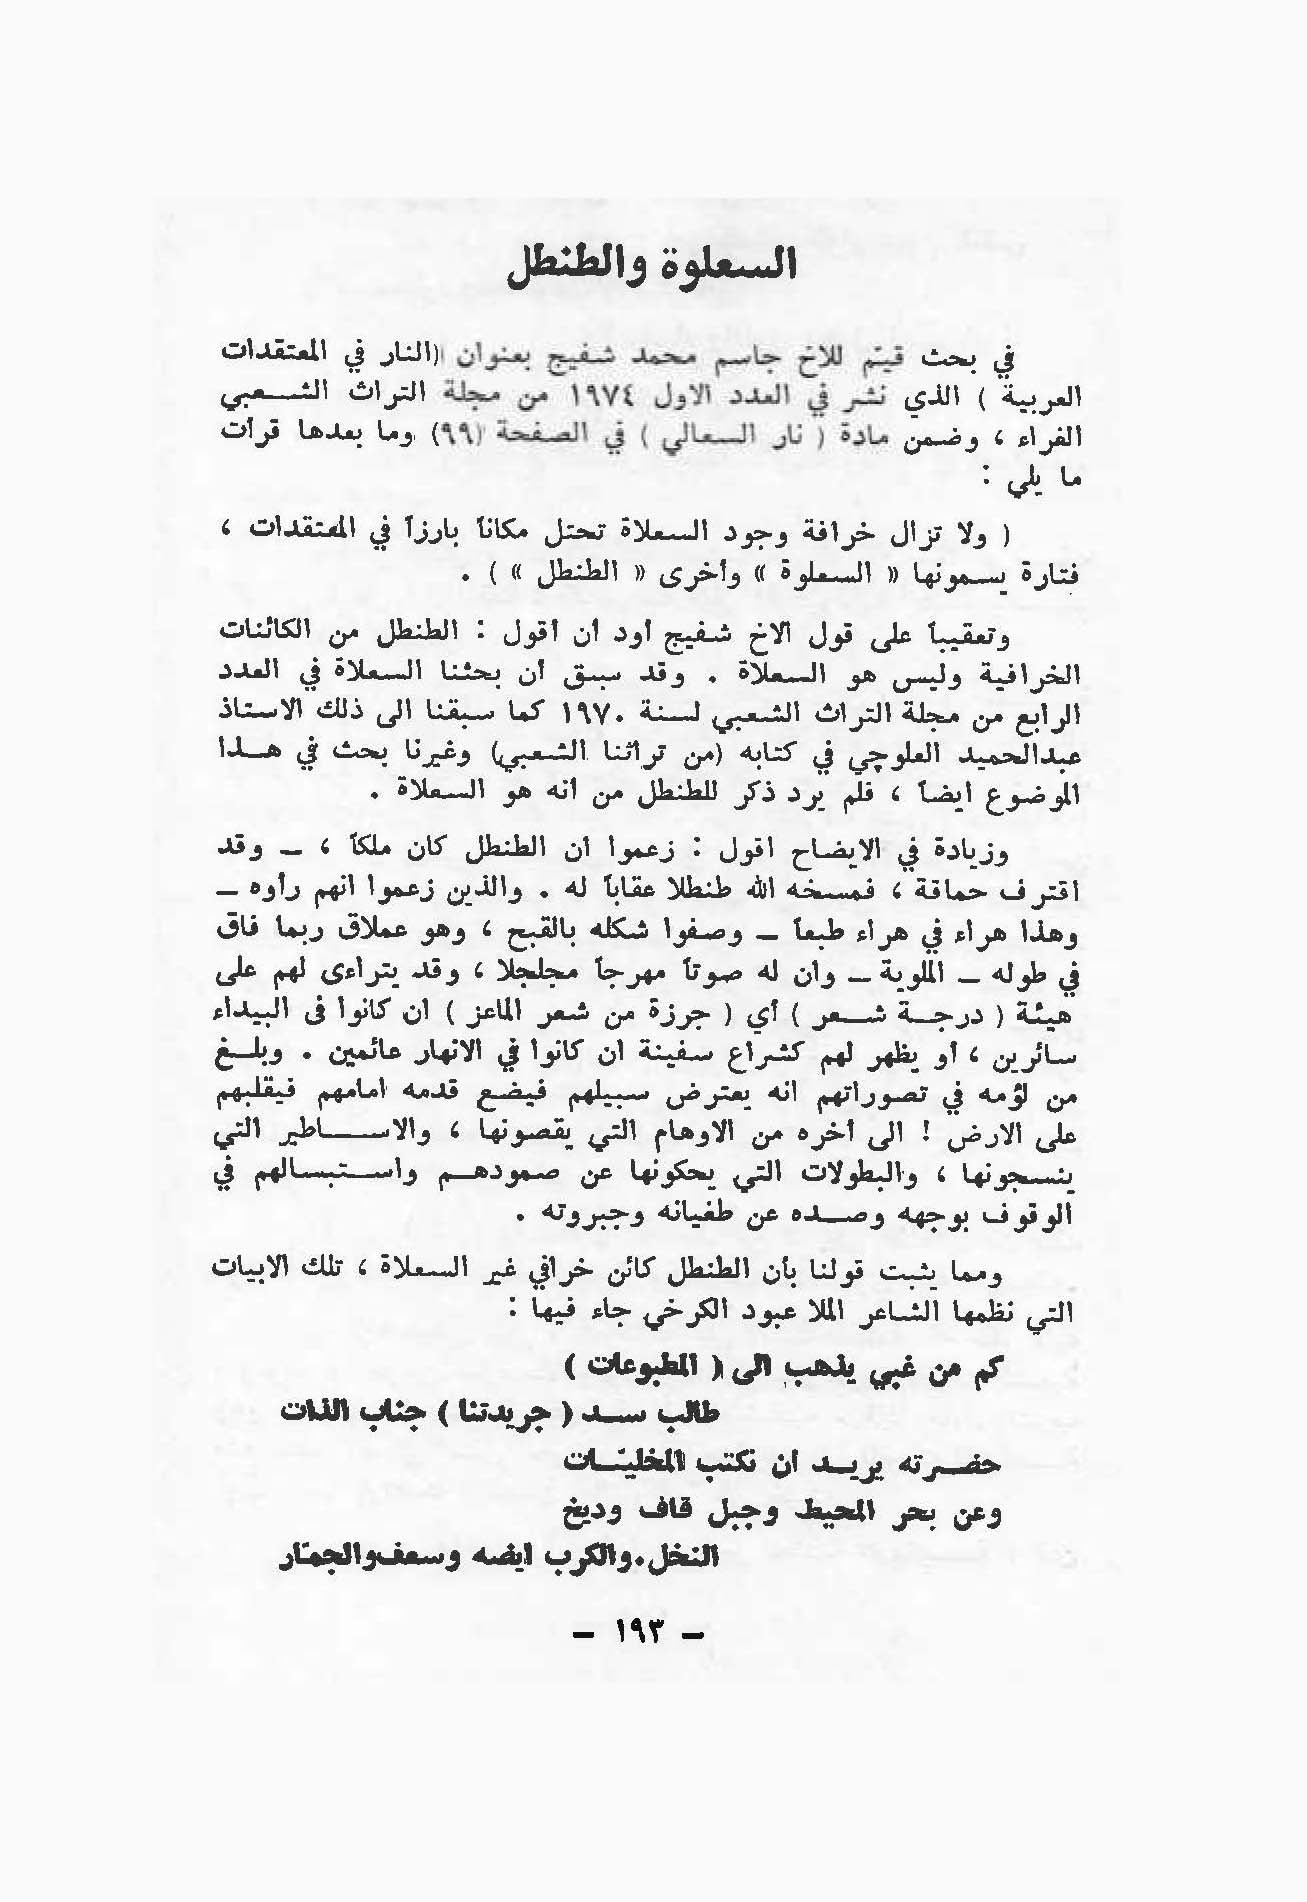 السعلوة والطنطل
في بحث قيّم للاخ جاسم محمد شفيج بعنوان (النار في المعتقدات
العربية ) الذي نشر في العدد الاول ١٩٧٤ من مجلة التراث الشـعبي
الغراء ، وضمن مادة ( نار السعالي ) في الصفحة (٩٩) وما بعدها قرأت
ما يلي :
( ولا تزال خرافة وجود السعلاة تحتل مكاناً بارزاً في المعتقدات ،
فتارة يسمونها « السعلوة » وأخرى « الطنطل » ) .
وتعقيباً على قول الاخ شفيج أود ان أقول : الطنطل من الكائنات
الخرافية وليس هو السعلاة . وقد سبق ان بحثنا السعلاة في العدد
الرابع من مجلة التراث الشعبي لسنة ١٩٧٠ كما سبقنا الى ذلك الاستاذ
عبدالحميد العلوچي في كتابه (من تراثنا الشعبي) وغيرنا بحث في هـذا
الموضوع ايضاً ، فلم يرد ذكر للطنطل من انه هو السعلاة .
وزيادة في الايضاح اقول : زعموا ان الطنطل كان ملكاً ، ـ وقد
اقترف حماقة ، فمسخه الله طنطلا عقاباً له . والذين زعموا انهم رأوه ـ
وهذا هراء في هراء طبعاً ـ وصفوا شكله بالقبح ، وهو عملاق ربما فاق
في طوله ـ الملوية ـ وان له صوتاً مهرجاً مجلجلا ، وقد يتراءى لهم على
هيئة ( درجـة شـعر ) أي ( جرزة من شعر الماعز ) ان كانوا في البيداء
سائرين ، أو يظهر لهم كشراع سفينة ان كانوا في الانهار عائمين . وبلـغ
من لؤمه في تصوراتهم انه يعترض سبيلهم فيضع قدمه امامهم فيقلبهم
على الارض ! الى أخره من الاوهام التي يقصونها ، والاسـاطير التي
ينسجونها ، والبطولات التي يحكونها عن صمودهـم واسـتبسالهم في
الوقوف بوجهه وصـده عن طغيانه وجبروته .
ومما يثبت قولنا بأن الطنطل كائن خرافي غير السعلاة ، تلك الابيات
التي نظمها الشاعر الملا عبود الكرخي جاء فيها :
كم من غبي يذهب الى ( المطبوعات )
طالب سـد ( جريدتنا ) جناب الذات
حضـرته يريـد ان نكتب المخليّـات
وعن بحر المحيط وجبل قاف وديخ
النخل.والكرب ايضه وسعف والجمّار
ـ ١٩٣ ـ